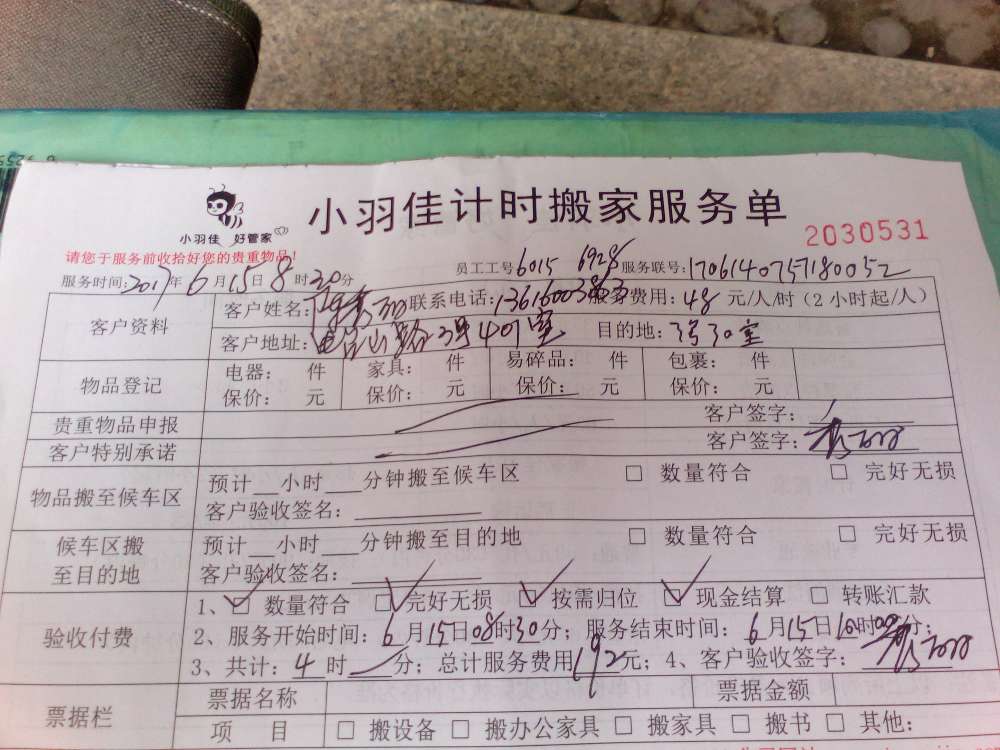 小羽佳计时搬家服务单
小羽佳 好管家
2030531
请您于服务前收拾好您的贵重物品!
服务时间:2017年6月15日8时30分 员工工号6015 6928 服务联号:1706140757180052
客户资料 客户姓名: 联系电话: 服务费用:48元/人/时(2小时起/人)
客户地址: 401室 目的地:
物品登记 电器: 件 家具: 件 易碎品: 件 包裹: 件
保价: 元 保价: 元 保价: 元 保价: 元
贵重物品申报 客户签字:
客户特别承诺 客户签字:
物品搬至候车区 预计__小时___分钟搬至候车区 □ 数量符合 □ 完好无损
客户验收签名:
候车区搬至目的地 预计__小时___分钟搬至目的地 □ 数量符合 □ 完好无损
客户验收签名:
验收付费 1、☑ 数量符合 ☑ 完好无损 ☑ 按需归位 ☑ 现金结算 □ 转账汇款
2、服务开始时间:6月15日08时30分;服务结束时间:6月15日10时 分;
3、共计:4时 分;总计服务费用192元;4、客户验收签字:
票据栏 票据名称 票据金额
项 目 □ 搬设备 □ 搬办公家具 □ 搬家具 □ 搬书 □ 其他: